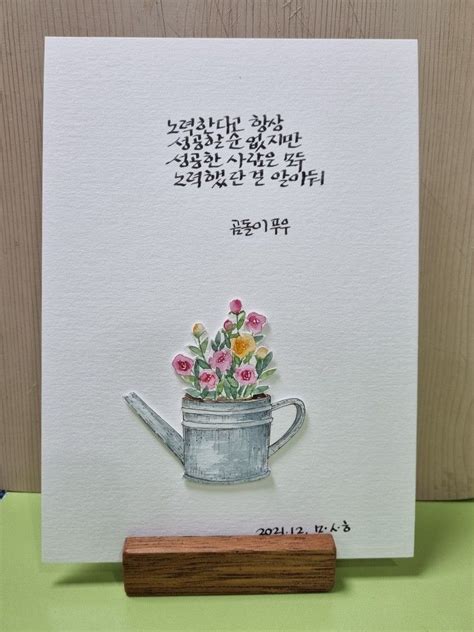 노력한다고 항상
성공할순 없지만
성공한 사람은 모두
노력했단 걸 알아둬
곰돌이푸우
2021.12. ㅁ.ㅅ.ㅎ